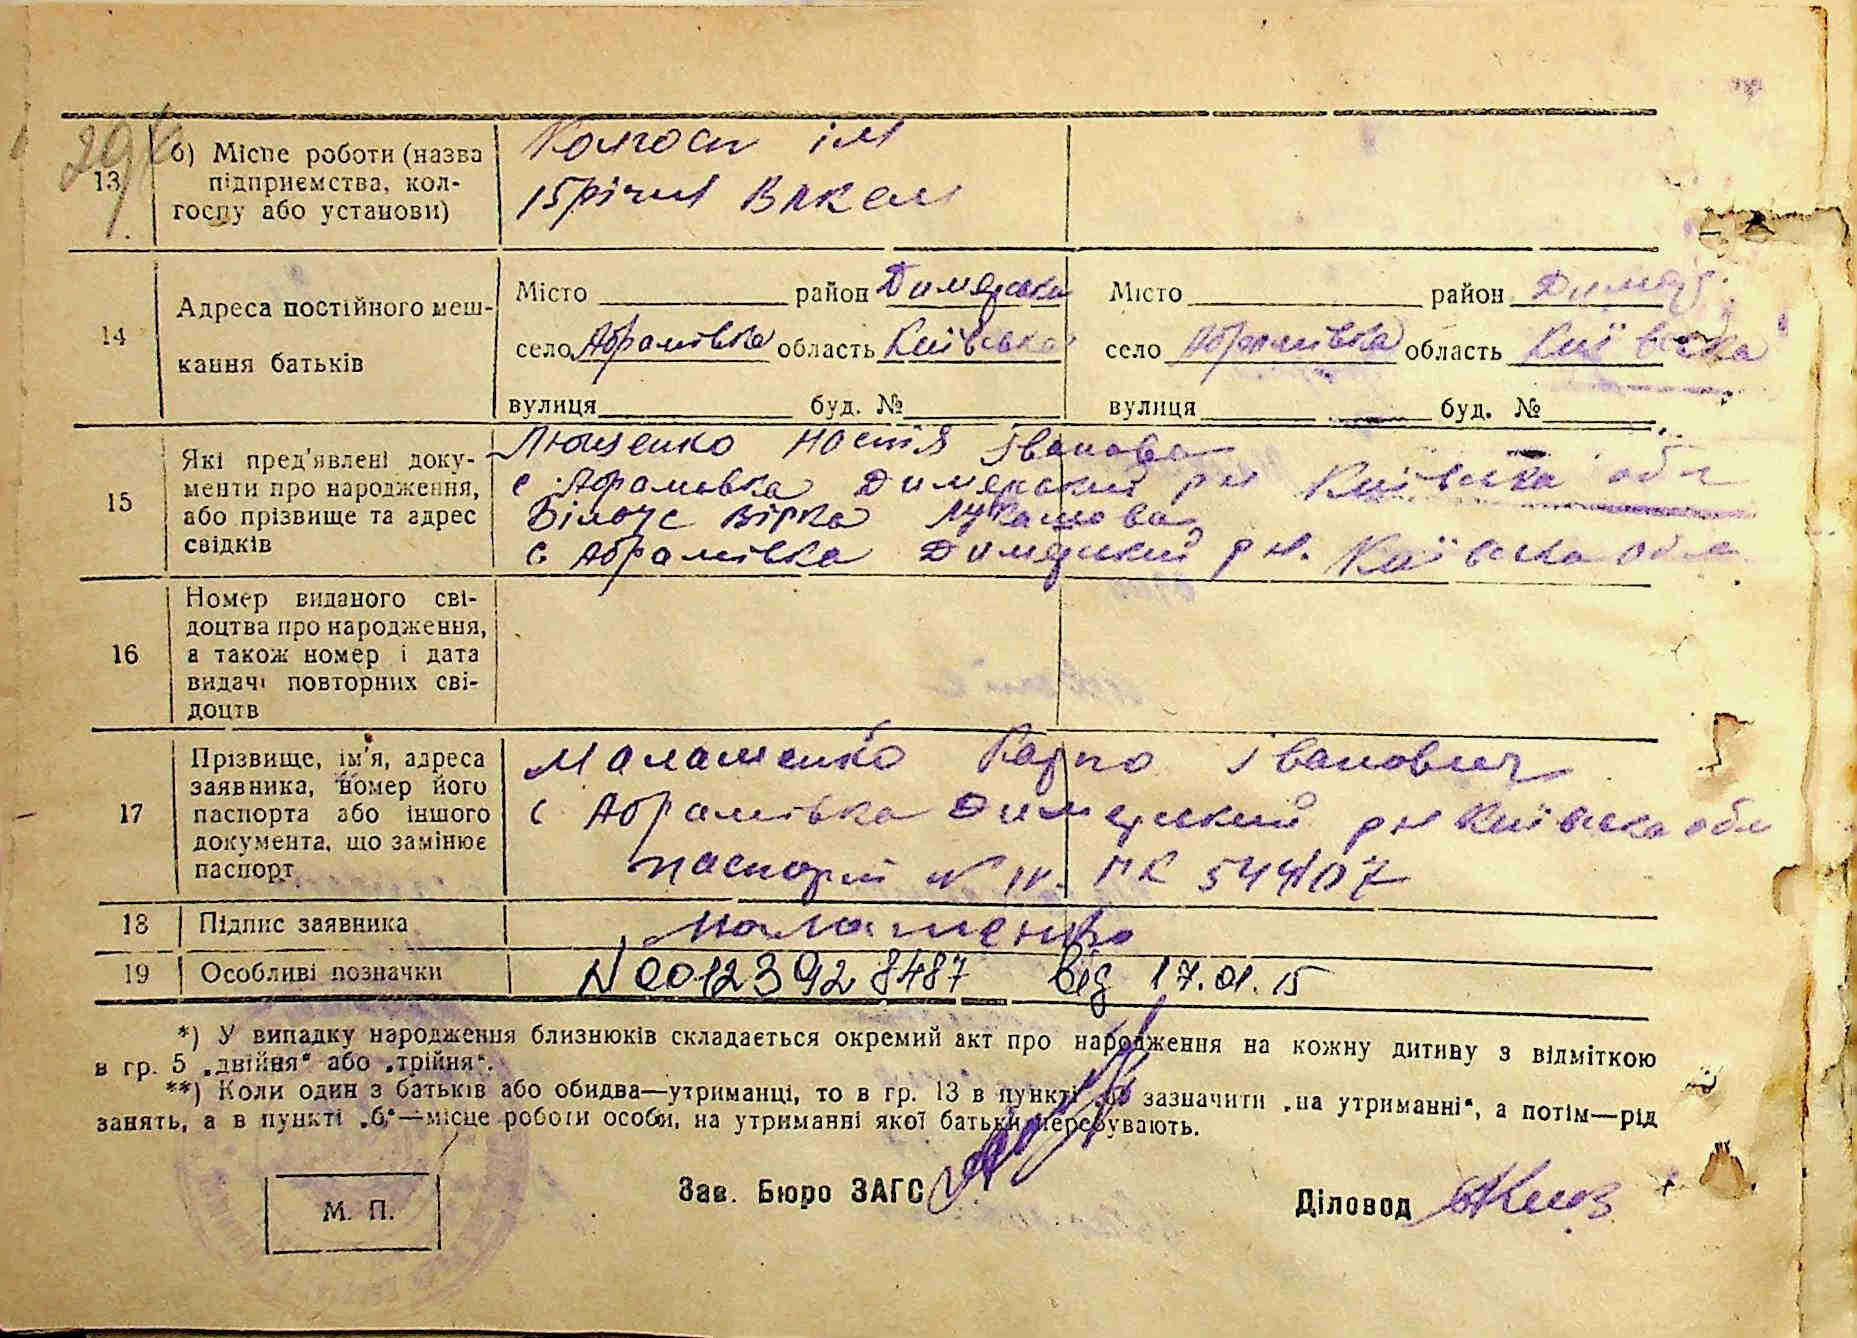 29
13
б) Місце роботи (назва
підприємства, кол-
госпу або установи)
Колгосп ім
15річчя ВЛКСМ
14
Адреса постійного меш-
кання батьків
Місто район Димерськи
село Абрамівка область Київська
вулиця буд. №
Місто район Димер
село Абрамівка область Київська
вулиця буд. №
15
Які пред'явлені доку-
менти про народження,
або прізвище та адрес
свідків
Лющенко Настія Іванова
с Абрамовка Димерський рн Київська обл
Білоус Вірка Лукашова
с Абрамівка Димерский рн. Київска обл
16
Номер виданого сві-
доцтва про народження,
а також номер і дата
видачі повторних сві-
доцтв
17
Прізвище, ім'я, адреса
заявника, номер його
паспорта або іншого
документа, що замінює
паспорт
Малашенко Карпо Іванович
с Абрамівка Димерский рн Київска обл
паспорт N ПК 544107
18
Підпис заявника
Малашенко
19
Особливі позначки
N 00123928487 від 17.01.15
*) У випадку народження близнюків складається окремий акт про народження на кожну дитину з відміткою
в гр. 5 „двійня" або „трійня".
**) Коли один з батьків або обидва—утриманці, то в гр. 13 в пункті зазначити „на утриманні", а потім—рід
занять, а в пункті „б"—місце роботи особи, на утриманні якої батьки перебувають.
М. П.
Зав. Бюро ЗАГС
Діловод